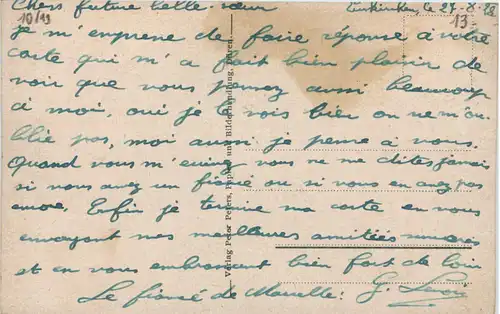 Chère future belle sœur
Euskirchen, le 27-8-26
10/19
13.-
je m'emprene de faire réponse à votre
carte qui m'a fait bien plaisir de
voir que vous pensez aussi beaucoup
à moi, oui je le vois bien on ne m'ou-
blie pas, moi aussi je pense à vous.
Quand vous m'écrivez vous ne me dites jamais
si vous avez un fiancé ou si vous en avez pas
encore. Enfin je termine ma carte en vous
envoyant mes meilleures amitiés
et en vous embrassant bien fort de loin
Le fiancé de Marcelle: G.
Verlag Peter Peters, Papier- und Bilderhandlung, Düren.